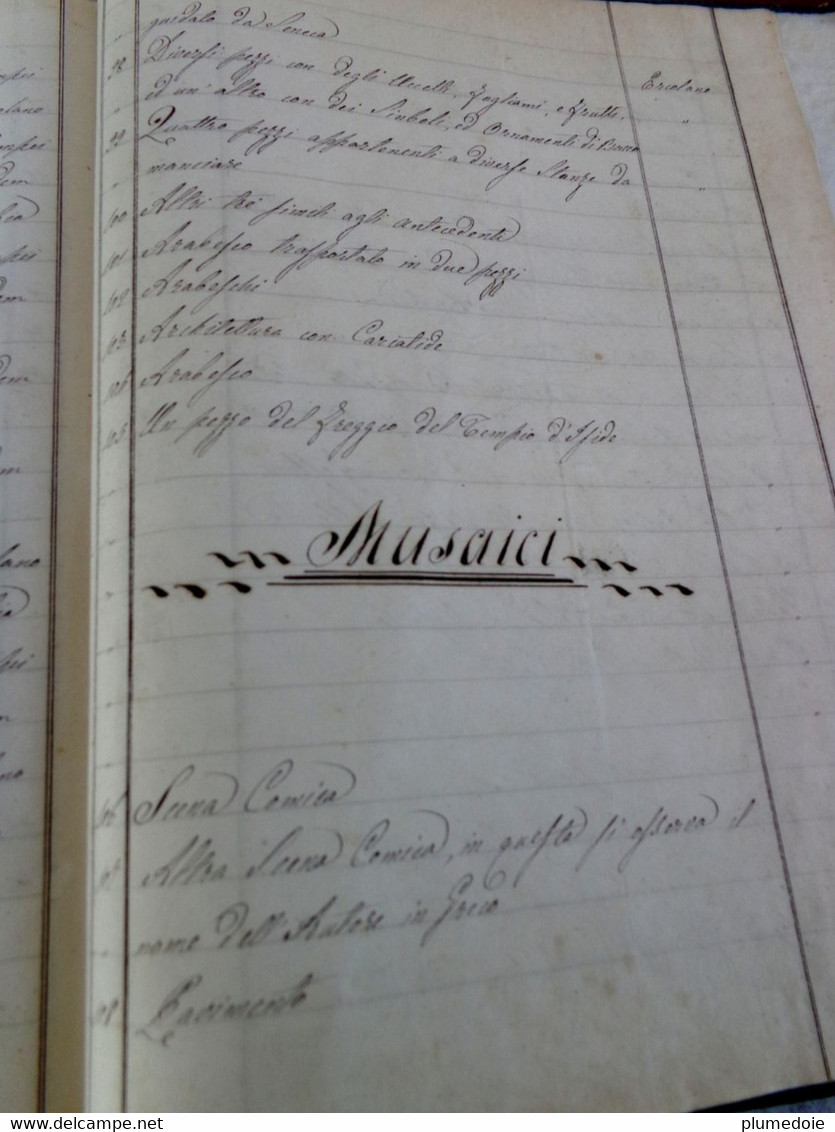 " guidato da Seneca
98 Diversi pezzi con degli Uccelli, Fogliami, e Frutti, Ercolano
" ed un' altro con dei Simboli, ed Ornamenti di Bacco "
99 Quattro pezzi appartenenti a diverse Stanze da
" manciare "
100 Altri tré simili agli antecedenti
101 Arabesco trasportato in due pezzi
102 Arabeschi
103 Architettura con Cariatide
104 Arabesco
105 Un pezzo del freggio del Tempio d'Iside
Musaici
106 Scena Comica
107 Altra Scena Comica, in questa si osserva il
" nome dell' Autore in Greco
108 Pavimento
delcampe.net
plumedoie